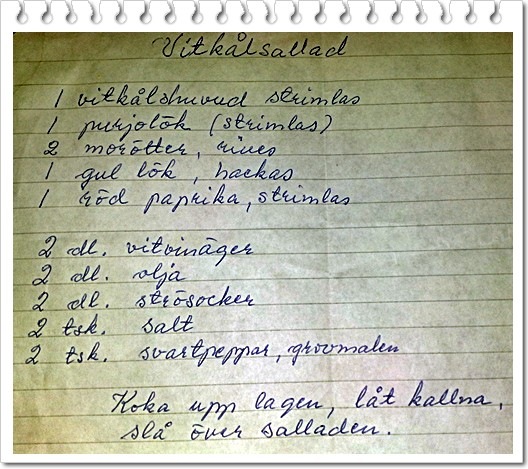 Vitkålsallad
1 vitkålshuvud strimlas
1 purjolök (strimlas)
2 morötter, rives
1 gul lök, hackas
1 röd paprika, strimlas
2 dl. vitvinäger
2 dl. olja
2 dl. strösocker
2 tsk. salt
2 tsk. svartpeppar, grovmalen
Koka upp lagen, låt kallna,
slå över salladen.